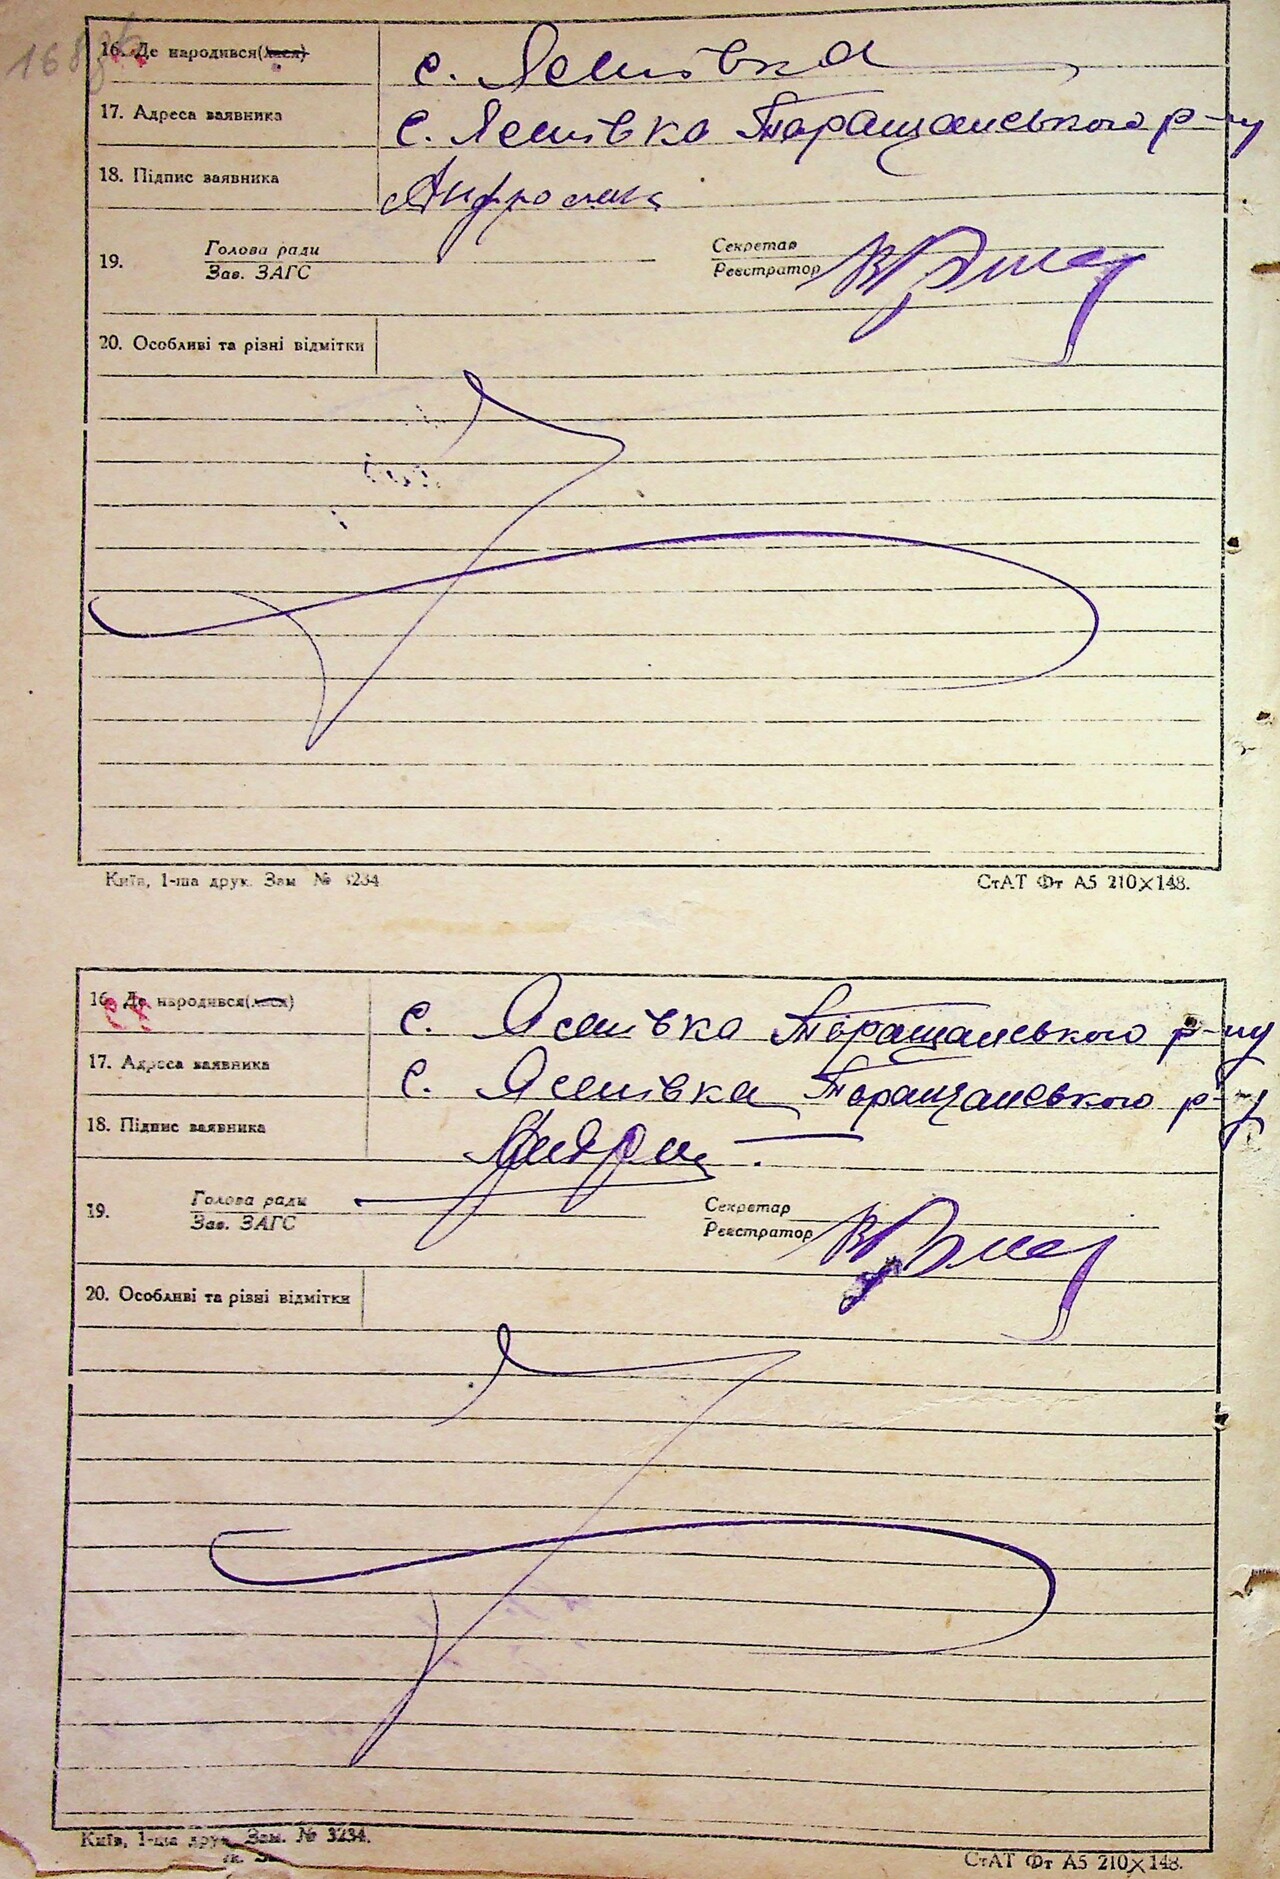 168
16. Де народився(лася) с. Ясенівка
17. Адреса заявника с. Ясенівка Таращанського р-ну
18. Підпис заявника
19. Голова ради Секретар
Зав. ЗАГС Реєстратор
20. Особливі та різні відмітки
Київ, 1-ша друк. Зам № 3234
СтАТ Фт А5 210×148.
16. Де народився(лася) с. Ясенівка Таращанського р-ну
17. Адреса заявника с. Ясенівка Таращанського р-ну
18. Підпис заявника
19. Голова ради Секретар
Зав. ЗАГС Реєстратор
20. Особливі та різні відмітки
Київ, 1-ша друк. Зам. № 3234.
СтАТ Фт А5 210×148.